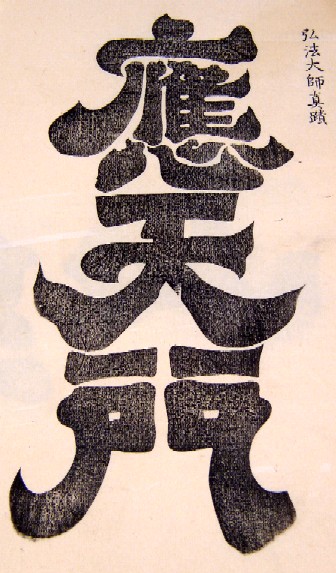 弘法大師真蹟
應天門